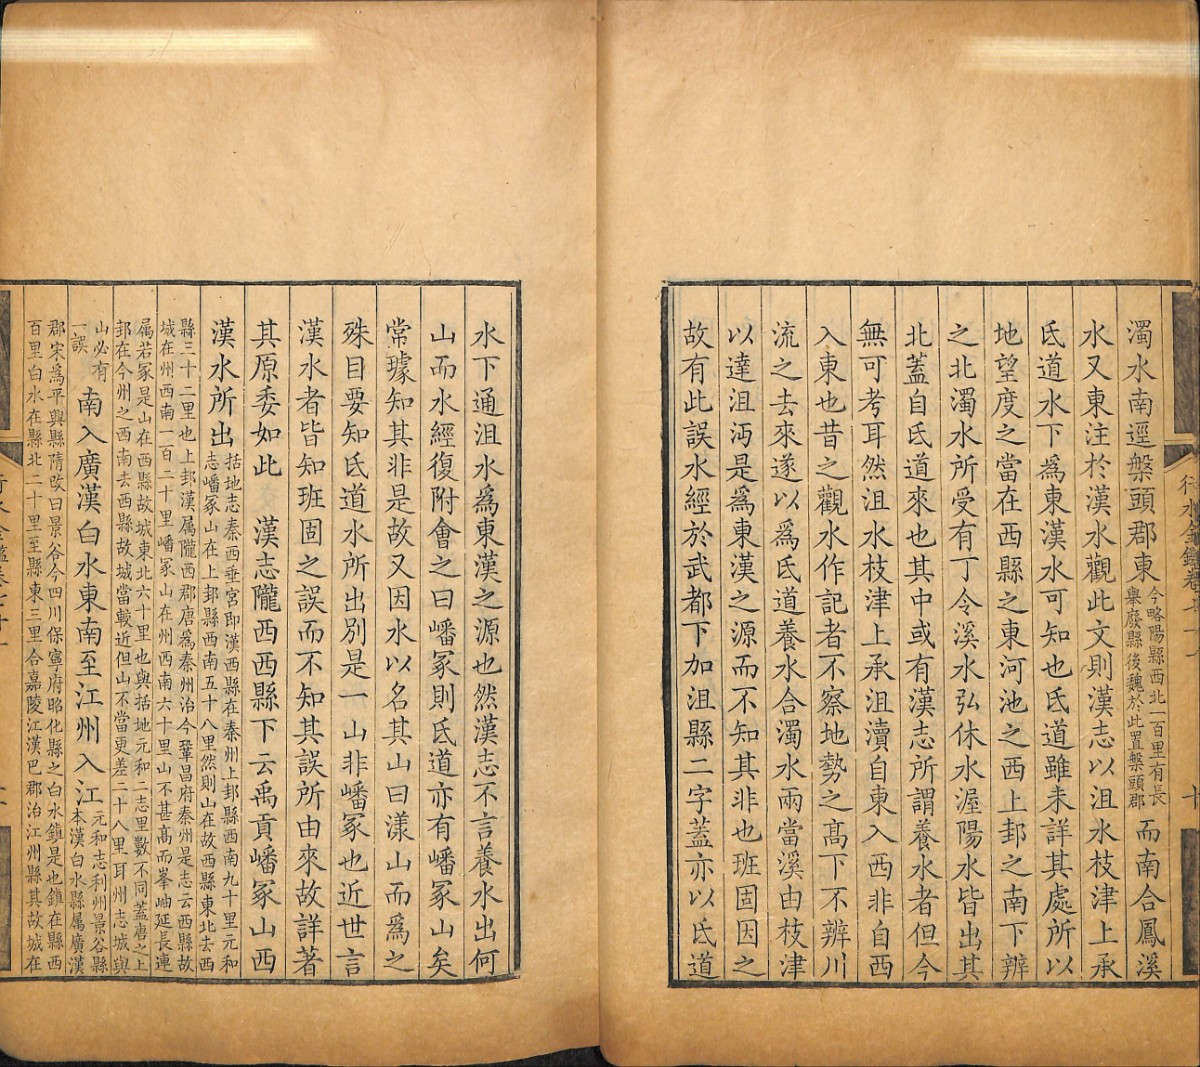 濁水南逕槃頭郡東今略陽縣西北一百里有長
舉廢縣後魏於此置槃頭郡而南合鳳溪
水又東注於漢水觀此文則漢志以沮水枝津上承
氐道水下爲東漢水可知也氐道雖未詳其處所以
地望度之當在西縣之東河池之西上邽之南下辨
之北濁水所受有丁令溪水弘休水渥陽水皆出其
北蓋自氐道來也其中或有漢志所謂養水者但今
無可考耳然沮水枝津上承沮瀆自東入西非自西
入東也昔之觀水作記者不察地勢之高下不辨川
流之去來遂以爲氐道養水合濁水兩當溪由枝津
以達沮沔是爲東漢之源而不知其非也班固因之
故有此誤水經於武都下加沮縣二字蓋亦以氐道
行水金鑑卷
水下通沮水爲東漢之源也然漢志不言養水出何
山而水經復附會之曰嶓冢則氐道亦有嶓冢山矣
常璩知其非是故又因水以名其山曰漾山而爲之
殊目要知氐道水所出別是一山非嶓冢也近世言
漢水者皆知班固之誤而不知其誤所由來故詳著
其原委如此　漢志隴西西縣下云禹貢嶓冢山西
漢水所出括地志秦西垂宮即漢西縣在秦州上邽縣西南九十里元和
志嶓冢山在上邽縣西南五十八里然則山在故西縣東北去西
縣三十二里也上邽漢屬隴西郡唐爲秦州治今鞏昌府秦州是志云西縣故
城在州西南一百二十里嶓冢山在州西南六十里山不甚高而峯岫延長連
屬若冢是山在西縣故城東北六十里也與括地元和二志里數不同蓋唐之上
邽在今州之西南去西縣故城當較近但山不當更差二十八里耳州志城與
山必有
一誤南入廣漢白水東南至江州入江元和志利州景谷縣
本漢白水縣屬廣漢
郡宋爲平興縣隋改曰景谷今四川保寧府昭化縣之白水鎮是也鎮在縣西
百里白水在縣北二十里至縣東三里合嘉陵江漢巴郡治江州縣其故城在